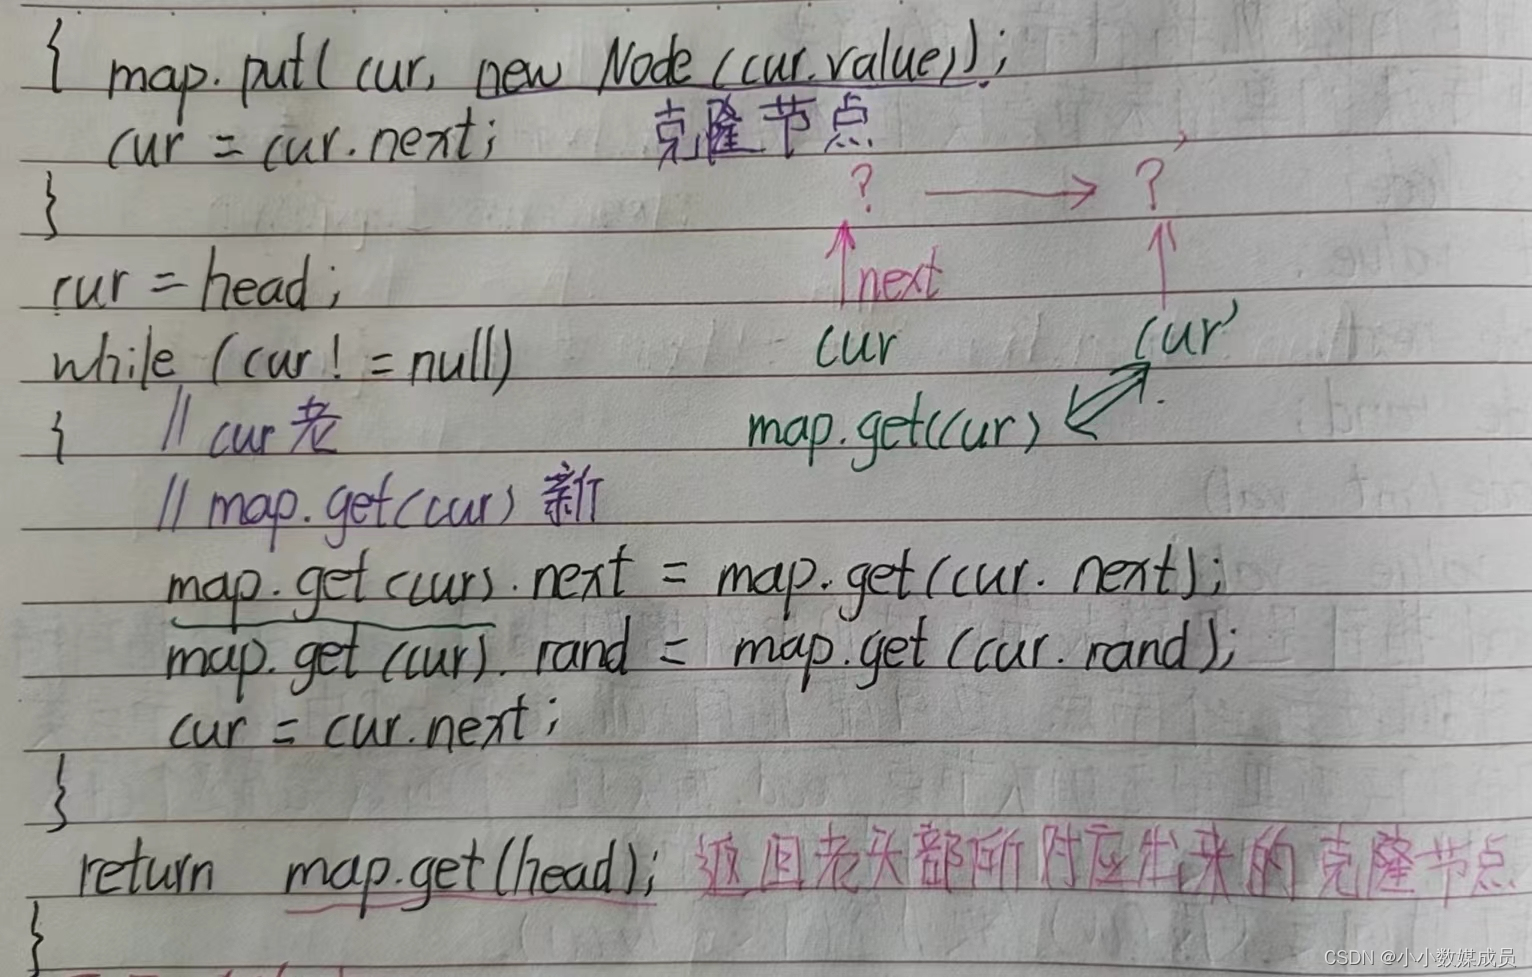 { map.put( cur, new Node (cur.value));
cur = cur.next; 克隆节点
} ? → ?’
next
cur = head;
while (cur! = null) cur cur’
{ // cur老 map.get(cur)
// map.get(cur) 新
map.get(cur).next = map.get(cur.next);
map.get(cur).rand = map.get(cur.rand);
cur = cur.next;
}
return map.get(head); 返回老头部所对应出来的克隆节点
}
CSDN @小小数媒成员